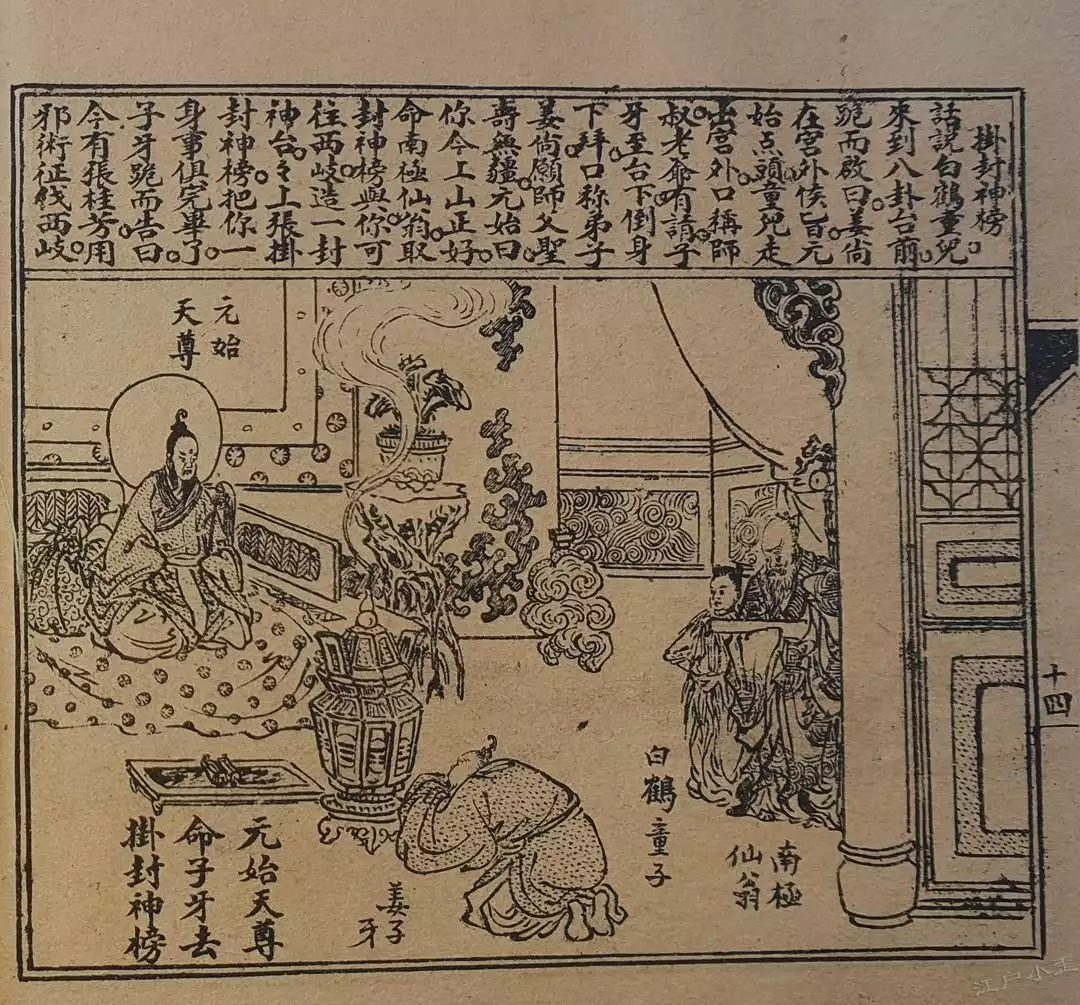 掛封神榜。
話説白鶴童兒
來到八卦台前。
跪而啟曰。姜尚
在宮外候旨。元
始点頭童兒走
出宮外口稱師
叔。老爺有請。子
牙至台下倒身
下拜。口称弟子
姜尚願師父聖
壽無疆。元始曰。
你今上山正好
命南極仙翁取
封神榜與你。可
往西岐造一封
神台。々上張掛
封神榜。把你一
身事俱完畢了。
子牙跪而告曰。
今有張桂芳。用
邪術征伐西岐。
元始
天尊
南極
仙翁
白鶴童子
姜子
牙
元始天尊
命子牙去
掛封神榜
十四
江户小歪